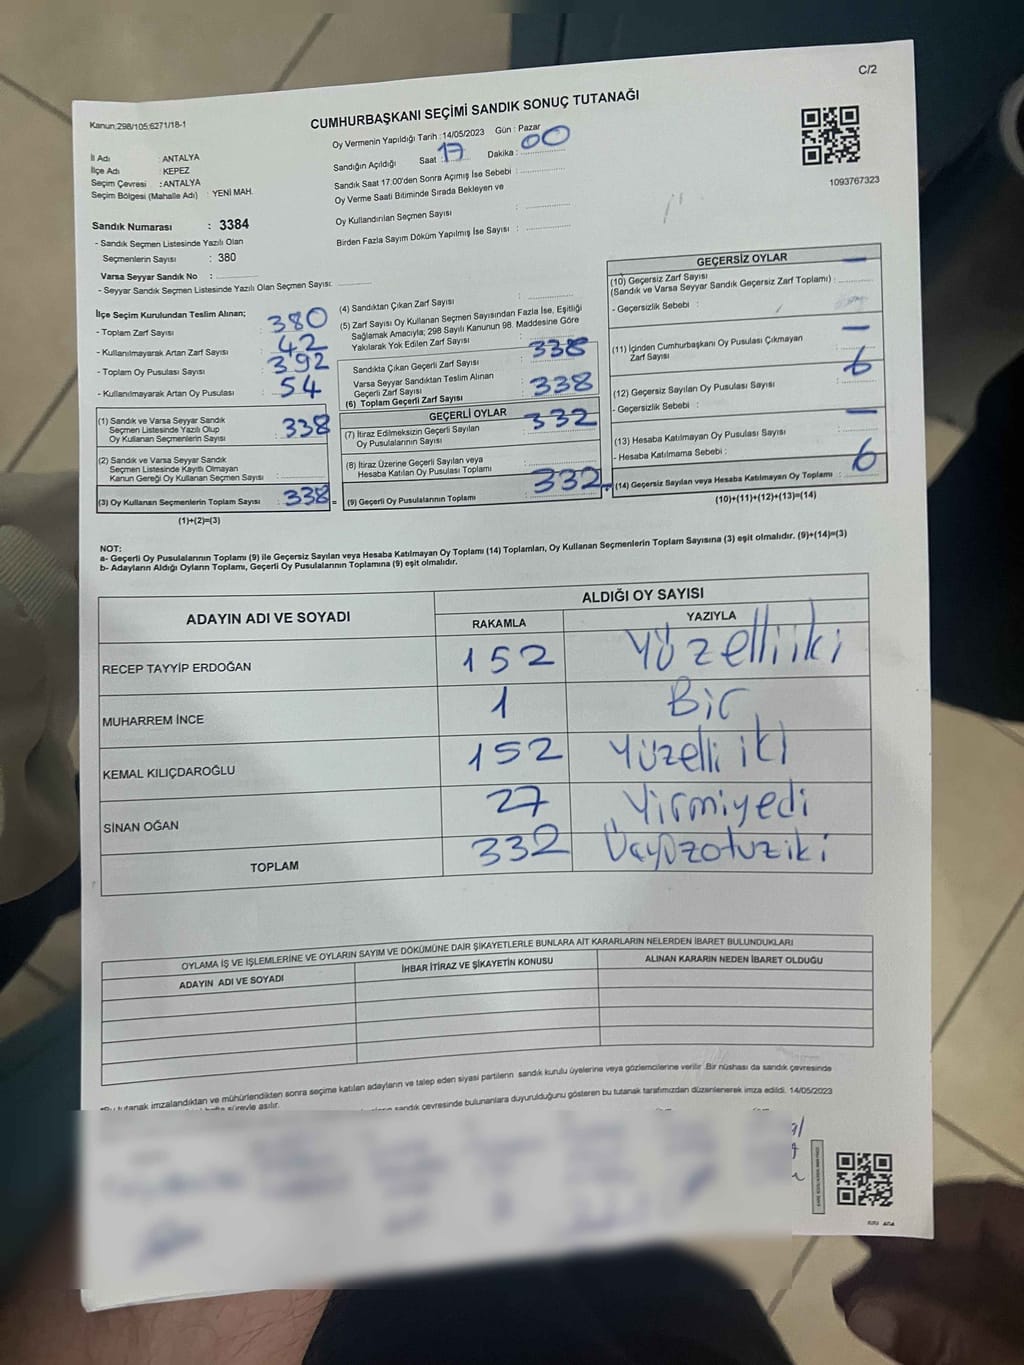 C/2
Kanun:298/105;6271/18-1
CUMHURBAŞKANI SEÇİMİ SANDIK SONUÇ TUTANAĞI
1093767323
İl Adı : ANTALYA
İlçe Adı : KEPEZ
Seçim Çevresi : ANTALYA
Seçim Bölgesi (Mahalle Adı) : YENİ MAH.
Sandık Numarası : 3384
- Sandık Seçmen Listesinde Yazılı Olan
Seçmenlerin Sayısı : 380
Varsa Seyyar Sandık No :
- Seyyar Sandık Seçmen Listesinde Yazılı Olan Seçmen Sayısı:
Oy Vermenin Yapıldığı Tarih : 14/05/2023 Gün : Pazar
Sandığın Açıldığı Saat : 17 Dakika : 00
Sandık Saat 17:00'den Sonra Açımış İse Sebebi :
Oy Verme Saati Bitiminde Sırada Bekleyen ve
Oy Kullandırılan Seçmen Sayısı :
Birden Fazla Sayım Döküm Yapılmış İse Sayısı :
İlçe Seçim Kurulundan Teslim Alınan;
- Toplam Zarf Sayısı : 380
- Kullanılmayarak Artan Zarf Sayısı : 42
- Toplam Oy Pusulası Sayısı : 392
- Kullanılmayarak Artan Oy Pusulası : 54
(1) Sandık ve Varsa Seyyar Sandık
Seçmen Listesinde Yazılı Olup
Oy Kullanan Seçmenlerin Sayısı : 338
(2) Sandık ve Varsa Seyyar Sandık
Seçmen Listesinde Kayıtlı Olmayan
Kanun Gereği Oy Kullanan Seçmen Sayısı :
(3) Oy Kullanan Seçmenlerin Toplam Sayısı : 338
(1)+(2)=(3)
(4) Sandıktan Çıkan Zarf Sayısı :
(5) Zarf Sayısı Oy Kullanan Seçmen Sayısından Fazla İse, Eşitliği
Sağlamak Amacıyla; 298 Sayılı Kanunun 98. Maddesine Göre
Yakılarak Yok Edilen Zarf Sayısı :
Sandıkta Çıkan Geçerli Zarf Sayısı : 338
Varsa Seyyar Sandıktan Teslim Alınan
Geçerli Zarf Sayısı :
(6) Toplam Geçerli Zarf Sayısı : 338
GEÇERLİ OYLAR
(7) İtiraz Edilmeksizin Geçerli Sayılan
Oy Pusulalarının Sayısı : 332
(8) İtiraz Üzerine Geçerli Sayılan veya
Hesaba Katılan Oy Pusulası Toplamı :
= (9) Geçerli Oy Pusulalarının Toplamı : 332
GEÇERSİZ OYLAR
(10) Geçersiz Zarf Sayısı
(Sandık ve Varsa Seyyar Sandık Geçersiz Zarf Toplamı) : —
- Geçersizlik Sebebi :
(11) İçinden Cumhurbaşkanı Oy Pusulası Çıkmayan
Zarf Sayısı : —
(12) Geçersiz Sayılan Oy Pusulası Sayısı : 6
- Geçersizlik Sebebi :
(13) Hesaba Katılmayan Oy Pusulası Sayısı : —
- Hesaba Katılmama Sebebi :
(14) Geçersiz Sayılan veya Hesaba Katılmayan Oy Toplamı : 6
(10)+(11)+(12)+(13)=(14)
NOT:
a- Geçerli Oy Pusulalarının Toplamı (9) ile Geçersiz Sayılan veya Hesaba Katılmayan Oy Toplamı (14) Toplamları, Oy Kullanan Seçmenlerin Toplam Sayısına (3) eşit olmalıdır. (9)+(14)=(3)
b- Adayların Aldığı Oyların Toplamı, Geçerli Oy Pusulalarının Toplamına (9) eşit olmalıdır.
ADAYIN ADI VE SOYADI ALDIĞI OY SAYISI
RAKAMLA YAZIYLA
RECEP TAYYİP ERDOĞAN 152 Yüzelliiki
MUHARREM İNCE 1 Bir
KEMAL KILIÇDAROĞLU 152 Yüzelli iki
SİNAN OĞAN 27 Yirmiyedi
TOPLAM 332 Üçyüzotuziki
OYLAMA İŞ VE İŞLEMLERİNE VE OYLARIN SAYIM VE DÖKÜMÜNE DAİR ŞİKAYETLERLE BUNLARA AİT KARARLARIN NELERDEN İBARET BULUNDUKLARI
ADAYIN ADI VE SOYADI İHBAR İTİRAZ VE ŞİKAYETİN KONUSU ALINAN KARARIN NEDEN İBARET OLDUĞU
tutanak imzalandıktan ve mühürlendikten sonra seçime katılan adayların ve talep eden siyasi partilerin sandık kurulu üyelerine veya gözlemcilerine verilir. Bir nüshası da sandık çevresinde
süreyle asılır.
sandık çevresinde bulunanlara duyurulduğunu gösteren bu tutanak tarafımızdan düzenlenerek imza edildi. 14/05/2023